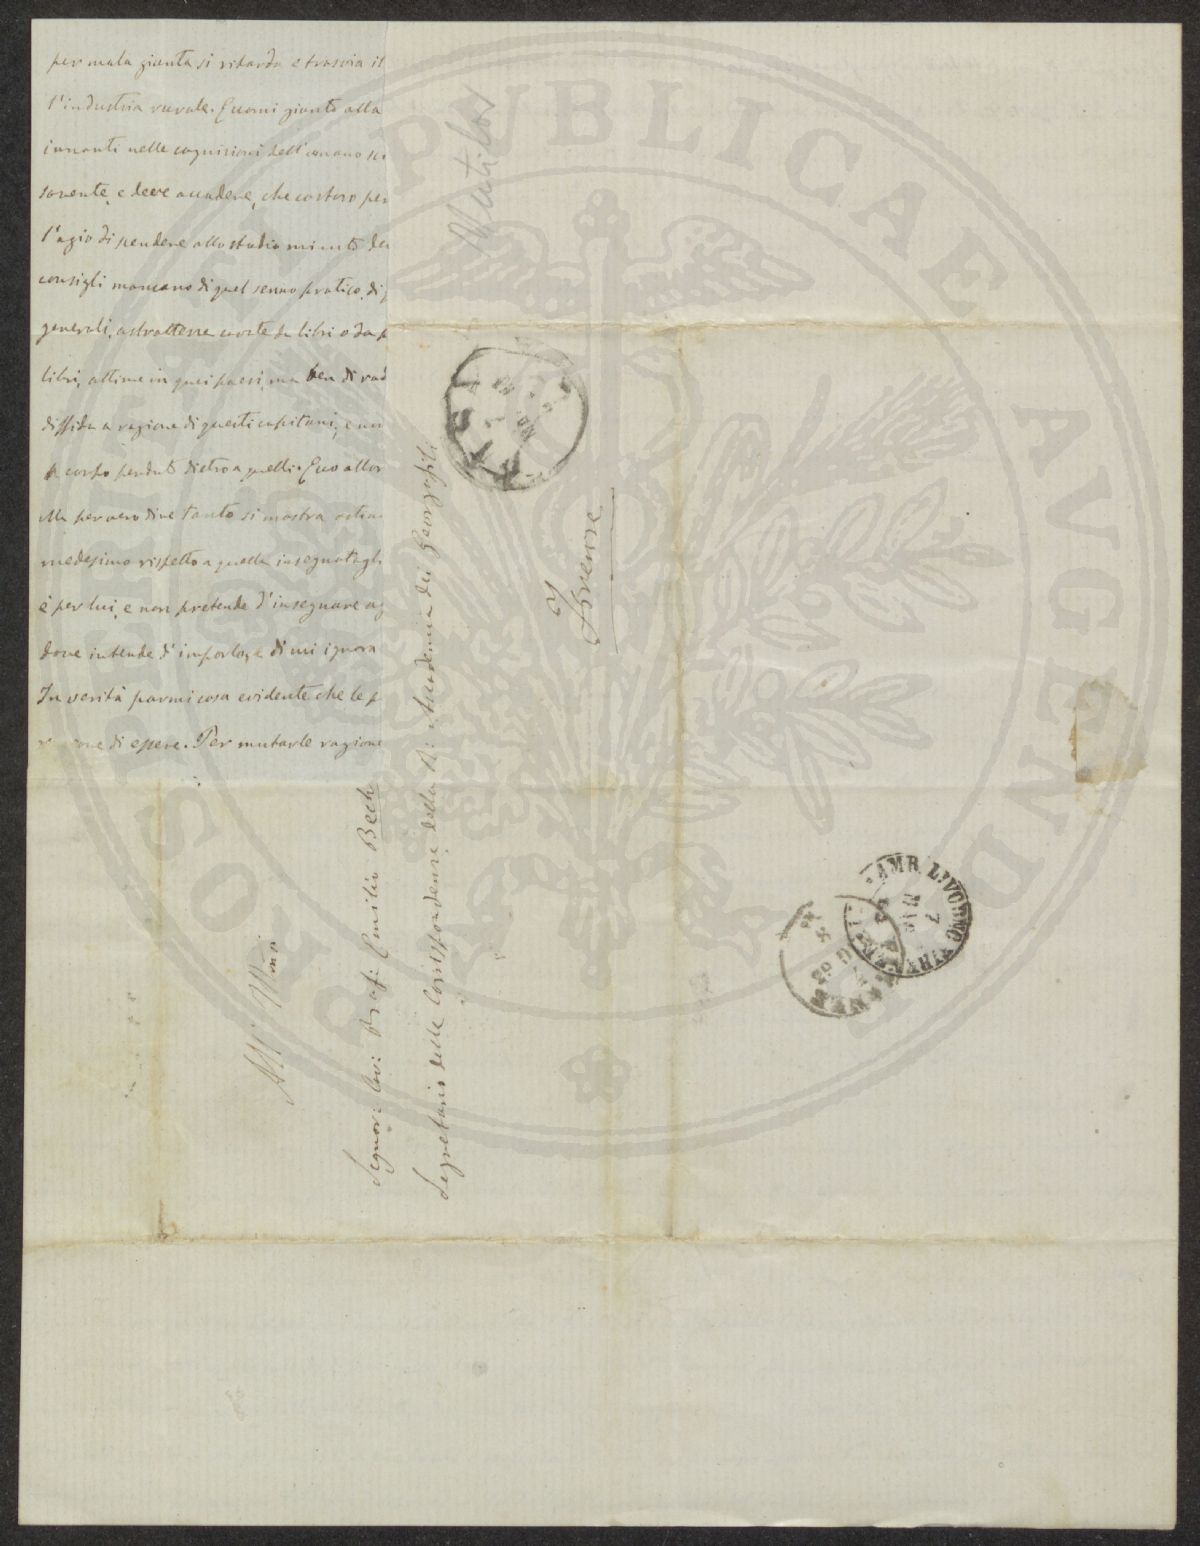 per mala giunta si ritarda e trasvia il
l'industria rurale. Eccomi giunto alla
innanti nelle cognizioni dell'umano sci
sovente, e deve accadere, che costoro per
l'agio di spendere allo studio minuto de
consigli mancano di quel senno pratico, di
generali, astrattezze cavate da libri o da p
libri, ottime in quei paesi, ma ben di rad
diffida a ragione di questi capitani, e non
a corpo perduto dietro a quelli. Ecco allor
Ma per vero dire tanto si mostra ostin
medesimo rispetto a quella insegnatagli
è per lui, e non pretende d'insegnare ag
dove intende d'imporlo, a di cui ignora
In verità parmi cosa evidente che le p
di essere. Per mutarle ragione
All'
Signor: Cav: Prof: Emilio Bechi
Segretario delle Corrispondenze della R: Accademia dei Georgofili
Firenze
PUBLICAE AVGENDAE
PROSPERITATI
AMB. LIVORNO
MAREMMANA
7
63